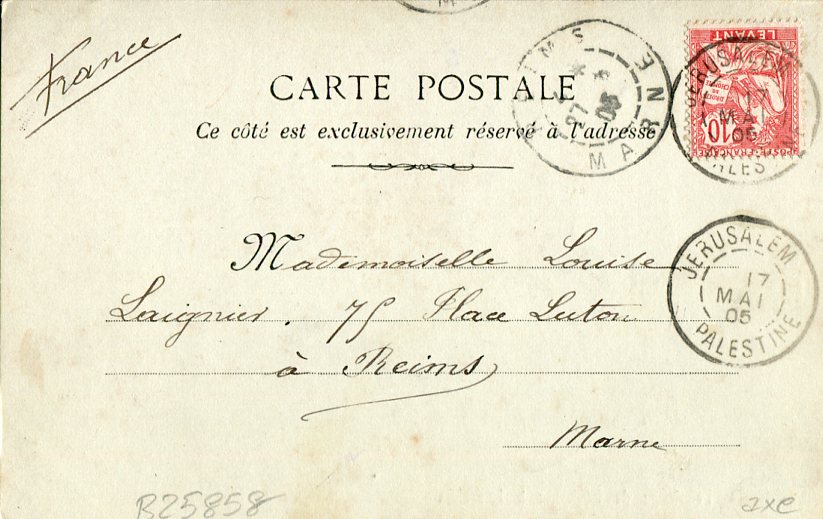 France
CARTE POSTALE
Ce côté est exclusivement réservé à l'adresse
LEVANT
10
POSTE FRANÇAISE
JERUSALEM
17
MAI
05
PALESTINE
REIMS
27
05
MARNE
Mademoiselle Louise
Laignier. 75 Place Luton
à Reims
Marne
JERUSALEM
17
MAI
05
PALESTINE
B25858
axe